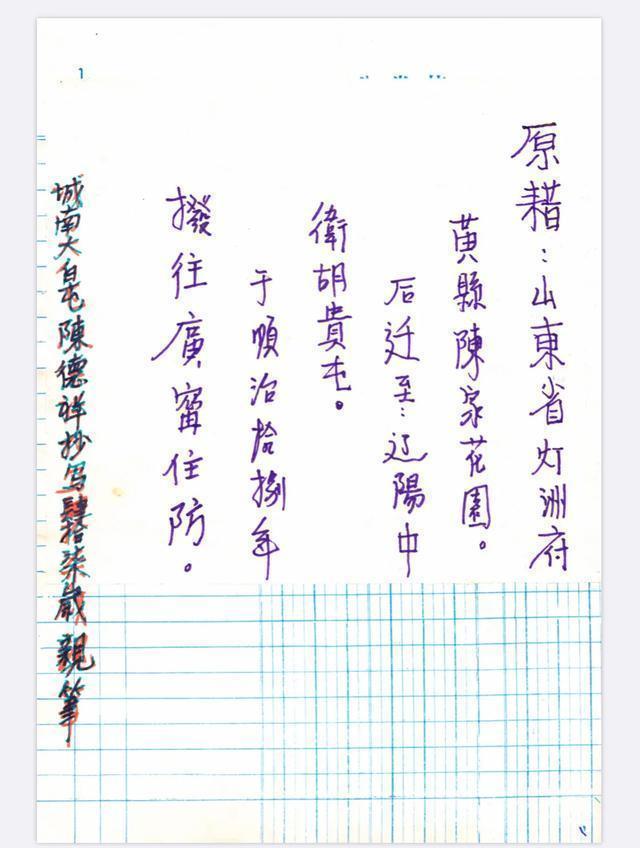 原耤：山東省灯洲府
黃縣陳家花園。
后迁至：辽陽中
衛胡貴屯。
于順治拾捌年
撥往廣甯住防。
城南大白屯陳德祥抄写肆拾柒歲親筆
1